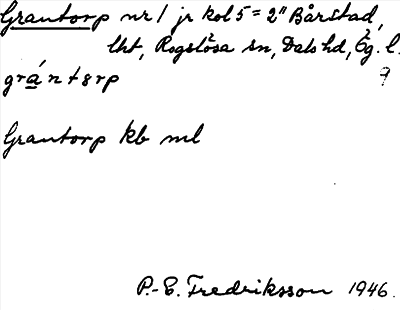 Grantorp nr 1 jr kol 5 = 2" Bårstad,
lht, Rogslösa sn, Dals hd, Ög. l.
?
grántorp
Grantorp kb ml
P.-E. Fredriksson 1946.